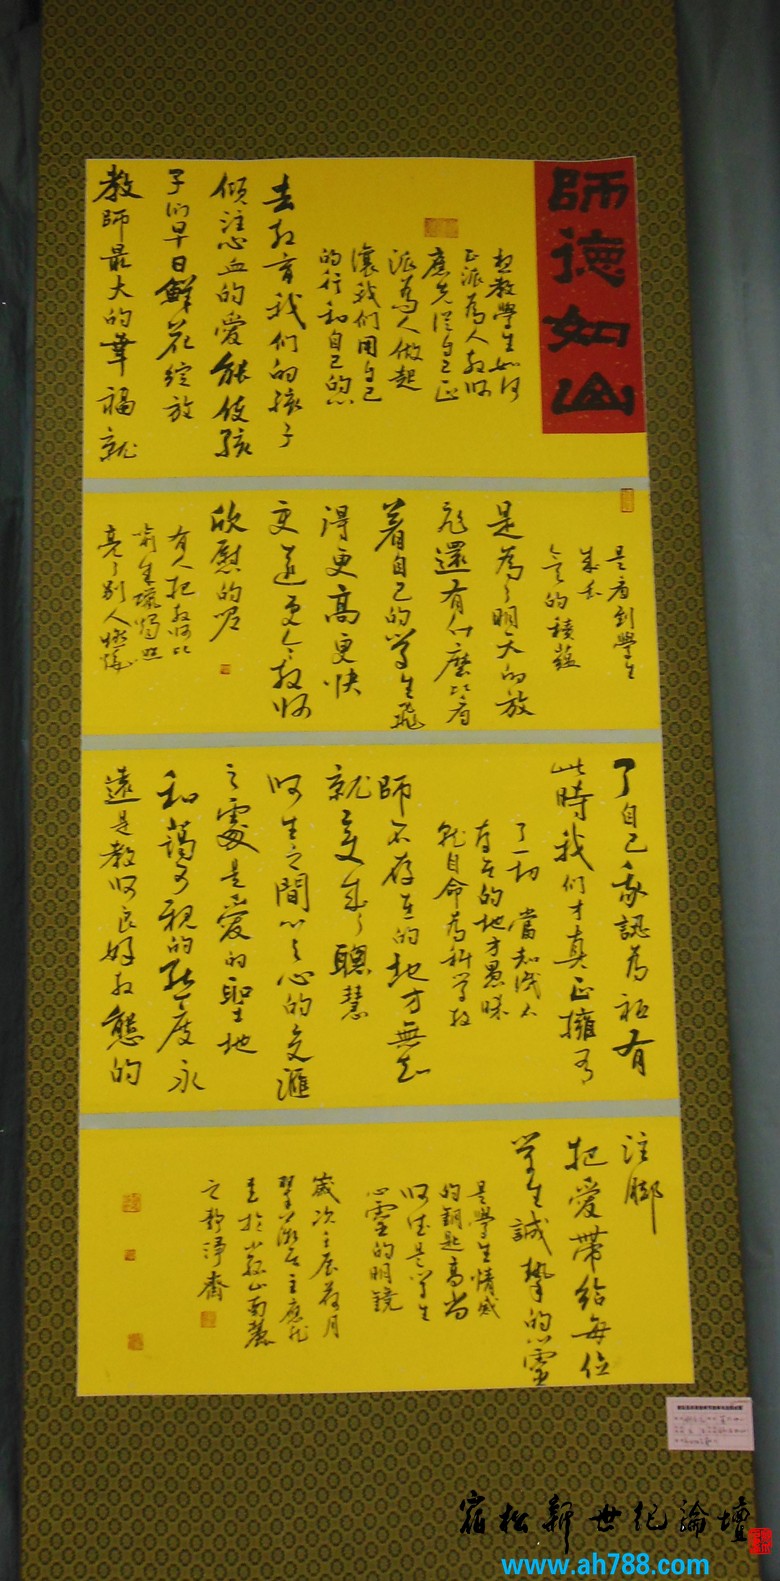 師德如山
想教學生如何
正派為人教師
應先從自己正
派為人做起
讓我们用自己
的行和自己的心
去教育我们的孩子
傾注心血的愛能使孩
子们早日鮮花綻放
教師最大的幸福就
是看到學生
成才
今天的積蘊
是為了明天的放
飛還有什麼比看
着自己的學生飛
得更高更快
更遠更令教师
欣慰的呢
有人把教师比
前生蠟燭照
亮了别人燃燒
了自己我認為祇有
此時我们才真正擁有
了一切 當知識不
存在的地方愚昧
就自命為科學教
師不存在的地方無知
就變成了聰慧
师生之間心与心的交滙
之處是愛的聖地
和藹可親的態度永
遠是教师良好教態的
注腳
把愛帶給每位
學生誠摯的心靈
是學生情感
的鑰匙高尚
师德是學生
心靈的明鏡
歲次壬辰荷月
之静淨齋
宿松新世纪論壇
www.ah788.com